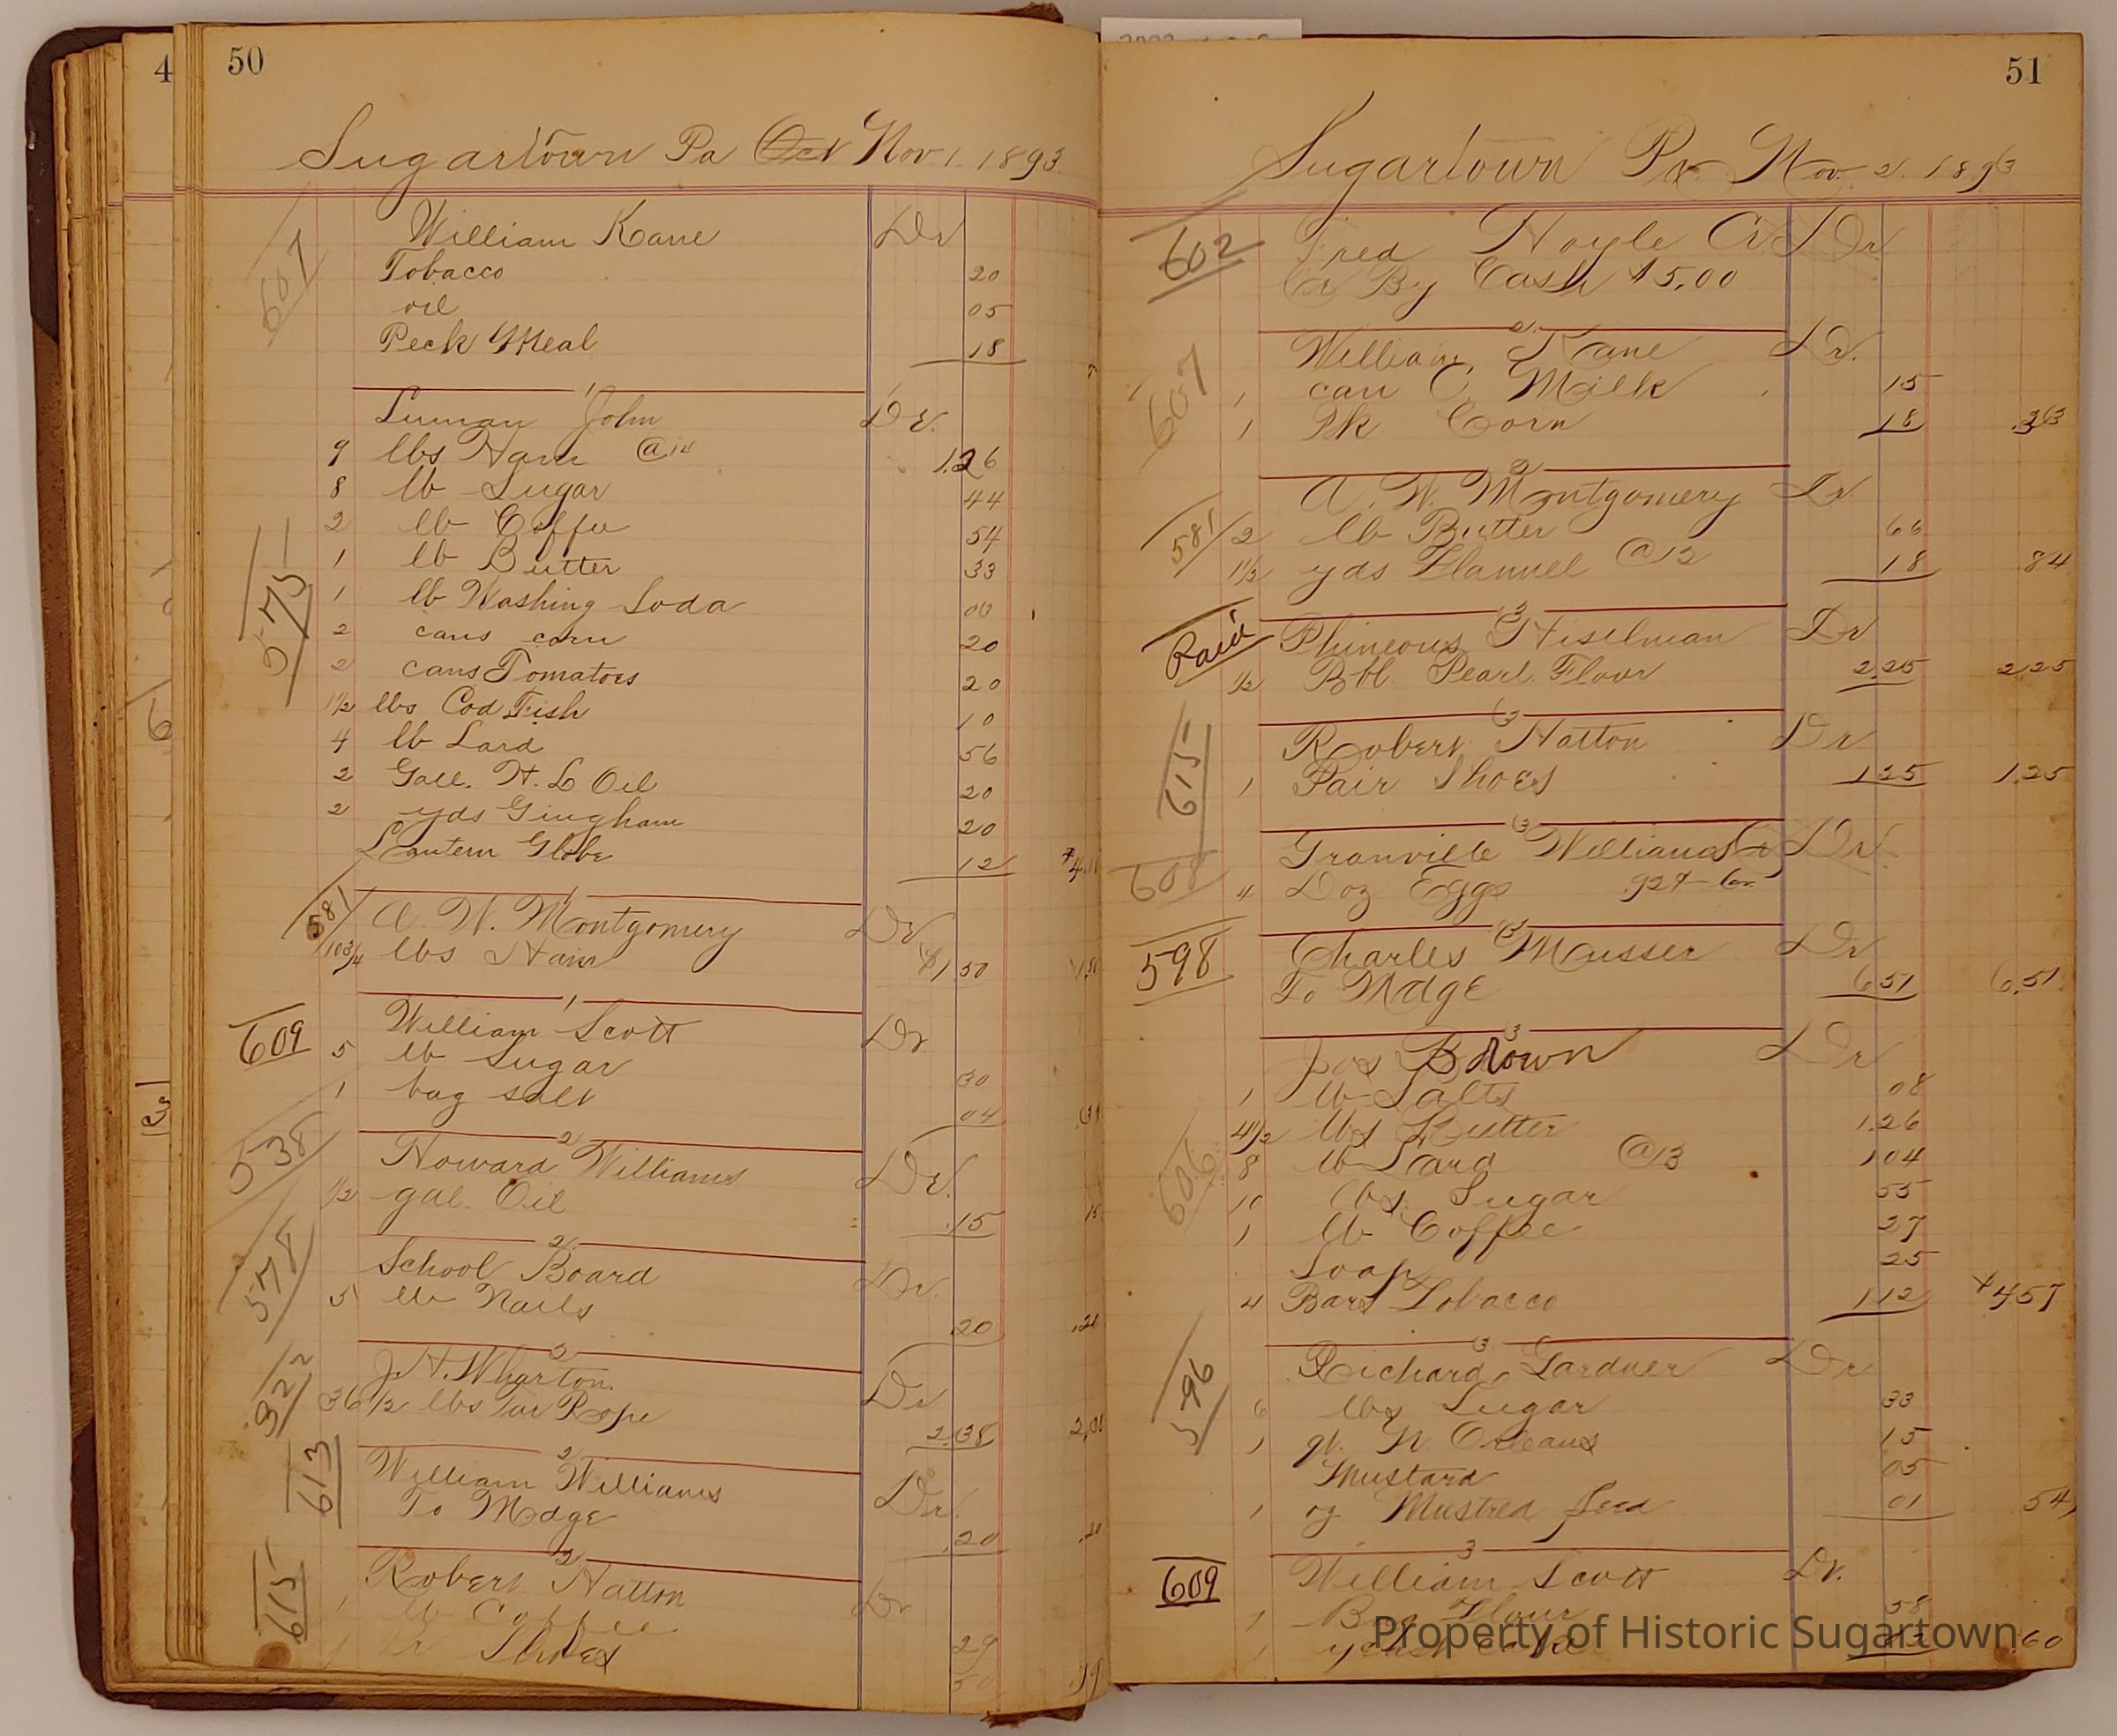 4
50
Sugartown Pa Oct Nov 1. 1893
607
William Kane Dr
Tobacco 20
oil 05
Peck Meal 18
1
575
John Dr.
9 lbs Ham @ 14 1.26
8 lb Sugar 44
2 lb Coffee 54
1 lb Butter 33
1 lb Washing Soda
2 cans corn 20
2 cans Tomatoes 20
1½ lbs Cod Fish 10
4 lb Lard 56
2 Gall. H. L Oil 20
2 yds Gingham 20
Lantern Globe 12
1
581
A. W. Montgomery Dr
10 3/4 lbs Ham $1.50
1
609
William Scott Dr
5 lb Sugar 30
1 bag salt 04
2
538
Howard Williams Dr.
½ gal. Oil .15 15
2
578
School Board Dr.
5 lb Nails 20 .20
2
J. H. Wharton. Dr
36 ½ lbs Tar Rope 2.38
2
613
William Williams Dr.
To Mdge .20
2
615
Robert Hatton Dr
1 lb Coffee 29
Shoes
51
Sugartown Pa. Nov. 2. 1893
602
Fred Hoyle Cr Dr
Cr By Cash $5.00
2
607
William Kane Dr.
1 can C. Milk 15
1 Pk Corn 18 .33
2
581
A. W. Montgomery Dr
2 lb Butter 66
1½ yds Flannel @ 12 18 84
3
Paid
Phineous Hiselman Dr
½ Bbl Pearl Flour 2.25 2.25
3
615
Robert Hatton Dr
1 Pair Shoes 1.25 1.25
3
608
Granville Williams Cr Dr
4 Doz Eggs
3
598
Charles Musser Dr
To Mdge 6.51 6.51
3
606
Jos Brown Dr
1 lb Salts 08
4½ lbs Butter 1.26
8 lb Lard @ 13 1.04
10 lbs Sugar 55
1 lb Coffee 27
Soap 25
4 Bars Tobacco 1.12 $4.57
3
596
Richard Gardner Dr
6 lbs Sugar 33
1 qt. N. Orleans 15
Mustard 05
1 oz Mustred Seed 01 54
3
609
William Scott Dr.
1 Bag Flour 58
1 yeast cake .60
Property of Historic Sugartown